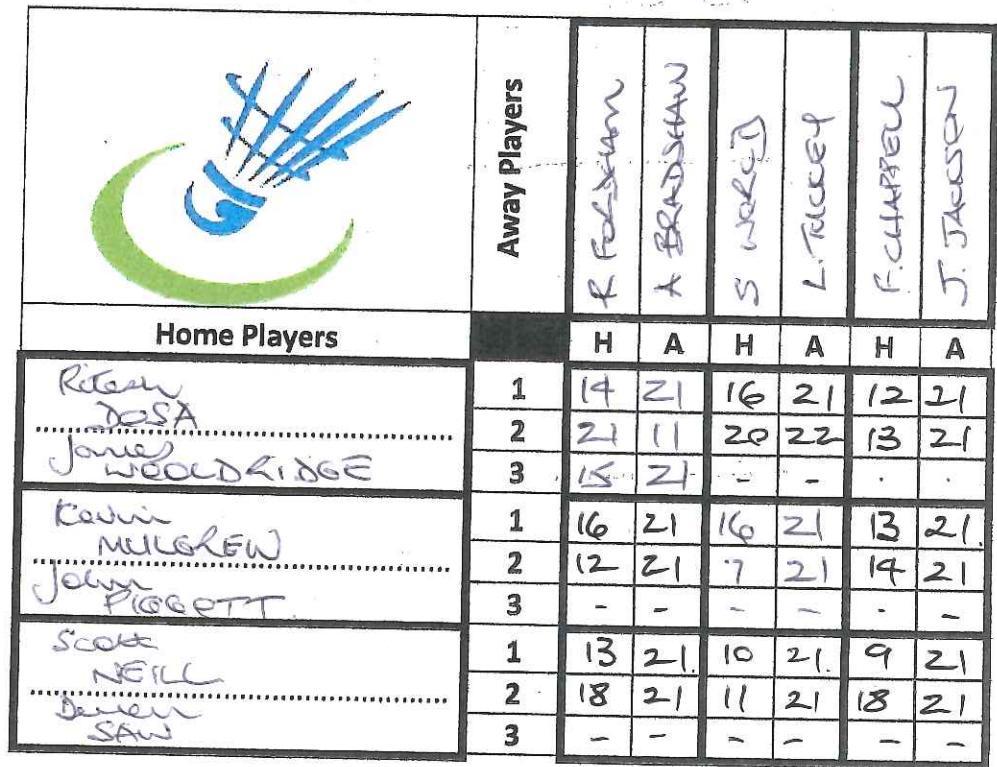 Away Players
R FORDHAM
A BRADSHAW
S WORLD
L. TUCKEY
F. CHAPPELL
J. JACKSON
Home Players
H A H A H A
Ritesh
DOSA
James
WOOLDRIDGE
1 14 21 16 21 12 21
2 21 11 20 22 13 21
3 15 21 - - . .
Kevin
MULGREW
John
PIGGOTT
1 16 21 16 21 13 21.
2 12 21 7 21 14 21
3 - - - - . -
Scott
NEILL
SAW
1 13 21. 10 21. 9 21
2 18 21 11 21 18 21
3 - - - - - -